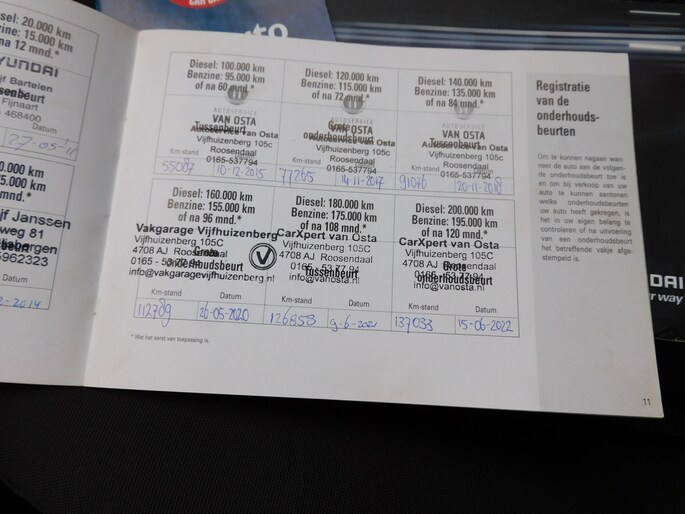 sel: 20.000 km
zine: 15.000 km
na 12 mnd.*
YUNDAI
jf Bartelen
Fijnaart
468400
Datum
27-05-11
.000 km
na mnd.*
jf Janssen
weg 81
bergen
5962323
Datum
2-2014
Diesel: 100.000 km
Benzine: 95.000 km
of na 60 mnd.*
AUTOSERVICE
VAN OSTA
Tussenbeurt
Autoservice van Osta
Vijfhuizenberg 105c
Roosendaal
0165-537794
Km-stand
Datum
55087
10-12-2015
Diesel: 120.000 km
Benzine: 115.000 km
of na 72 mnd.*
AUTOSERVICE
VAN OSTA
Grote
onderhoudsbeurt
Autoservice van Osta
Vijfhuizenberg 105c
Roosendaal
0165-537794
Km-stand
Datum
77265
14-11-2017
Diesel: 140.000 km
Benzine: 135.000 km
of na 84 mnd.*
AUTOSERVICE
VAN OSTA
Tussenbeurt
Autoservice van Osta
Vijfhuizenberg 105c
Roosendaal
0165-537794
Km-stand
Datum
91076
20-11-2018
Diesel: 160.000 km
Benzine: 155.000 km
of na 96 mnd.*
Vakgarage Vijfhuizenberg
Vijfhuizenberg 105C
4708 AJ Roosendaal
Grote
0165 - 53 77 94
onderhoudsbeurt
info@vakgaragevijfhuizenberg.nl
Km-stand
Datum
112789
26-05-2020
Diesel: 180.000 km
Benzine: 175.000 km
of na 108 mnd.*
CarXpert van Osta
Vijfhuizenberg 105C
4708 AJ Roosendaal
0165 - 53 77 94
Tussenbeurt
info@vanosta.nl
Km-stand
Datum
126858
9-6-2021
Diesel: 200.000 km
Benzine: 195.000 km
of na 120 mnd.*
CarXpert van Osta
Vijfhuizenberg 105C
4708 AJ Roosendaal
Grote
0165 - 53 77 94
onderhoudsbeurt
info@vanosta.nl
Km-stand
Datum
137033
15-06-2022
* Wat het eerst van toepassing is.
Registratie
van de
onderhouds-
beurten
Om te kunnen nagaan wan-
neer de auto aan de volgen-
de onderhoudsbeurt toe is
en om bij verkoop van uw
auto te kunnen aantonen
welke onderhoudsbeurten
uw auto heeft gekregen, is
het in uw eigen belang te
controleren of na uitvoering
van een onderhoudsbeurt
het betreffende vakje afge-
stempeld is.
11